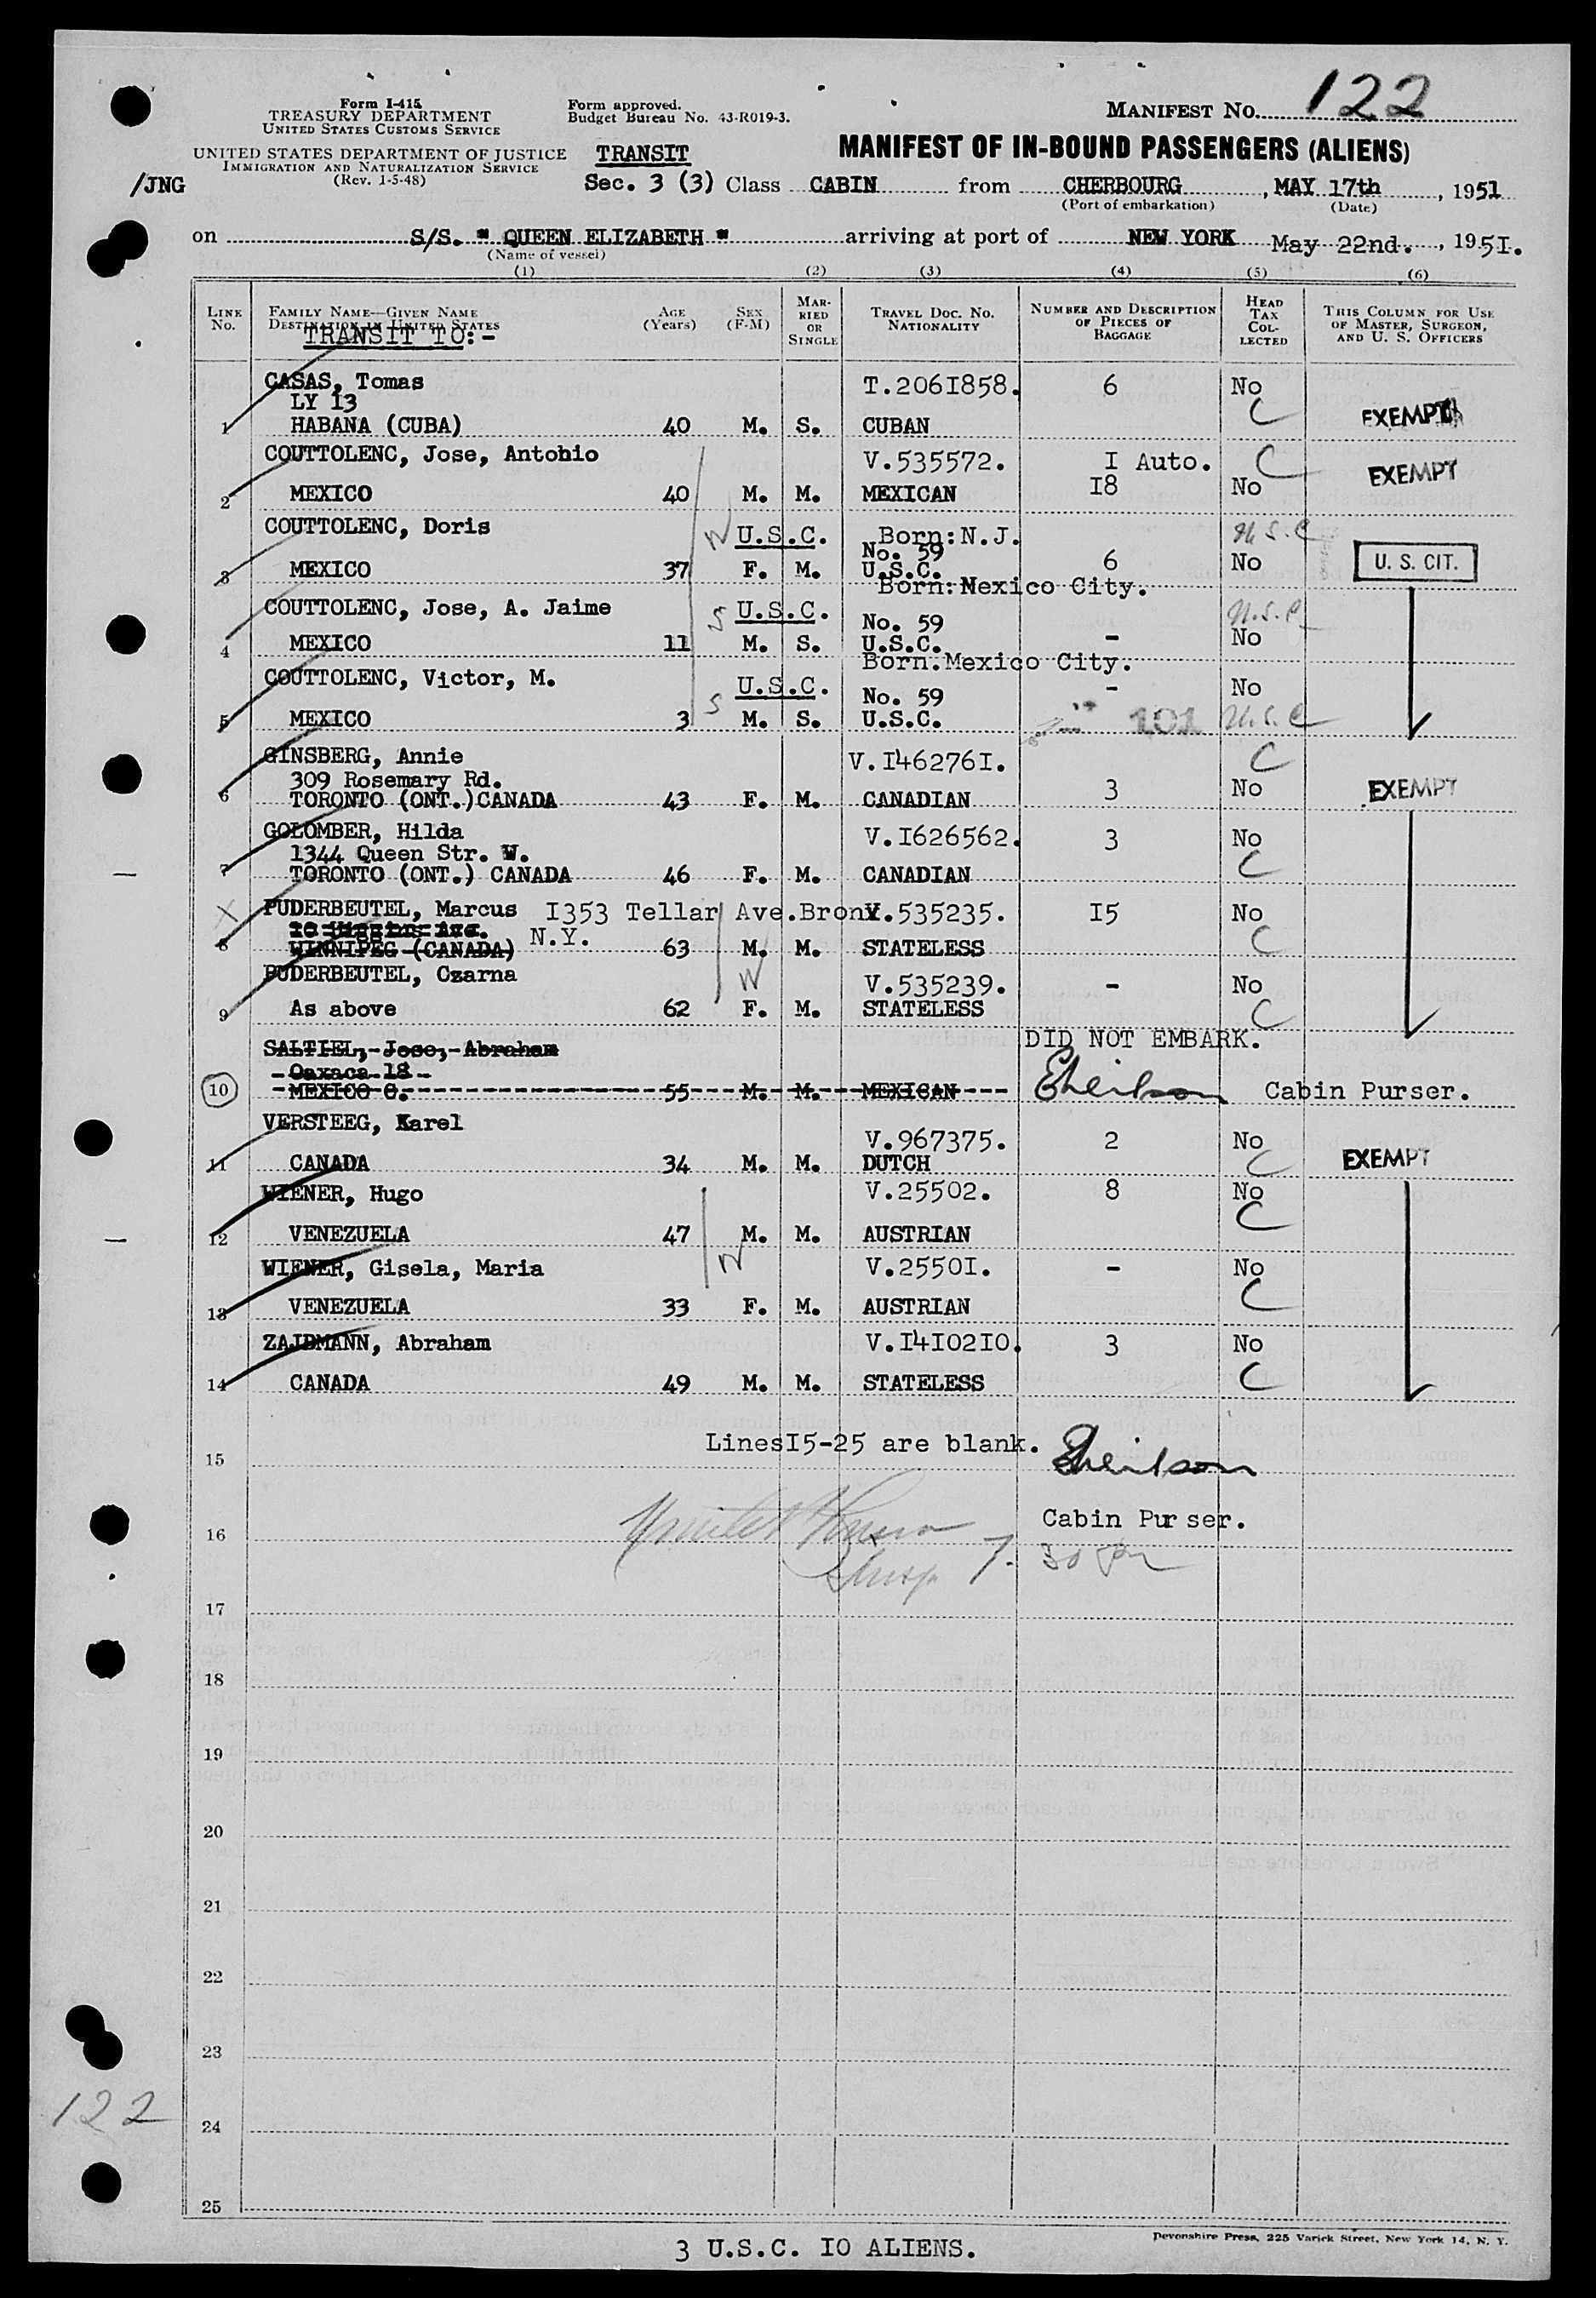 Form I-415
TREASURY DEPARTMENT
UNITED STATES CUSTOMS SERVICE
UNITED STATES DEPARTMENT OF JUSTICE
IMMIGRATION AND NATURALIZATION SERVICE
(Rev. 1-5-48)
/JNG
Form approved.
Budget Bureau No. 43-R019-3.
MANIFEST No. 122
MANIFEST OF IN-BOUND PASSENGERS (ALIENS)
TRANSIT
Sec. 3 (3) Class CABIN from CHERBOURG, MAY 17th, 1951
(Port of embarkation) (Date)
on S/S. " QUEEN ELIZABETH " arriving at port of NEW YORK May 22nd., 1951.
(Name of vessel)
(1) (2) (3) (4) (5) (6)
LINE No. FAMILY NAME—GIVEN NAME DESTINATION IN UNITED STATES AGE (Years) SEX (F-M) MARRIED OR SINGLE TRAVEL DOC. No. NATIONALITY NUMBER AND DESCRIPTION OF PIECES OF BAGGAGE HEAD TAX COLLECTED THIS COLUMN FOR USE OF MASTER, SURGEON, AND U. S. OFFICERS
TRANSIT TO:-
CASAS, Tomas T.2061858. 6 No
LY 13 C EXEMPT
1 HABANA (CUBA) 40 M. S. CUBAN
COUTTOLENC, Jose, Antohio V.535572. I Auto. C EXEMPT
2 MEXICO 40 M. M. MEXICAN 18 No
COUTTOLENC, Doris U.S.C. Born:N.J. U.S.C
No. 59
3 MEXICO 37 W F. M. U.S.C. 6 No U. S. CIT.
Born: Mexico City.
COUTTOLENC, Jose, A. Jaime U.S.C. No. 59 U.S.C
4 MEXICO 11 S M. S. U.S.C. - No
Born.Mexico City.
COUTTOLENC, Victor, M. U.S.C. No. 59 - No
5 MEXICO 3 S M. S. U.S.C. 101 U.S.C
GINSBERG, Annie V.1462761. C
309 Rosemary Rd.
6 TORONTO (ONT.)CANADA 43 F. M. CANADIAN 3 No EXEMPT
GOLOMBER, Hilda V.1626562. 3 No
1344 Queen Str. W.
7 TORONTO (ONT.) CANADA 46 F. M. CANADIAN C
X PUDERBEUTEL, Marcus 1353 Tellar Ave.Bronx V.535235. 15 No
N.Y.
8 WINNIPEG (CANADA) 63 M. M. STATELESS C
PUDERBEUTEL, Czarna W V.535239. - No
9 As above 62 F. M. STATELESS C
SALTIEL, Jose, Abraham DID NOT EMBARK.
Oaxaca 18
10 MEXICO C. 55 M. M. MEXICAN Cabin Purser.
VERSTEEG, Karel V.967375. 2 No
11 CANADA 34 M. M. DUTCH C EXEMPT
WIENER, Hugo V.25502. 8 No
12 VENEZUELA 47 M. M. AUSTRIAN C
WIENER, Gisela, Maria W V.25501. - No
13 VENEZUELA 33 F. M. AUSTRIAN C
ZAJBMANN, Abraham V.1410210. 3 No
14 CANADA 49 M. M. STATELESS C
Lines15-25 are blank.
15
Cabin Purser.
16
Insp 7.30 pm
17
18
19
20
21
22
23
122
24
25
Devonshire Press, 225 Varick Street, New York 14, N. Y.
3 U.S.C. 10 ALIENS.